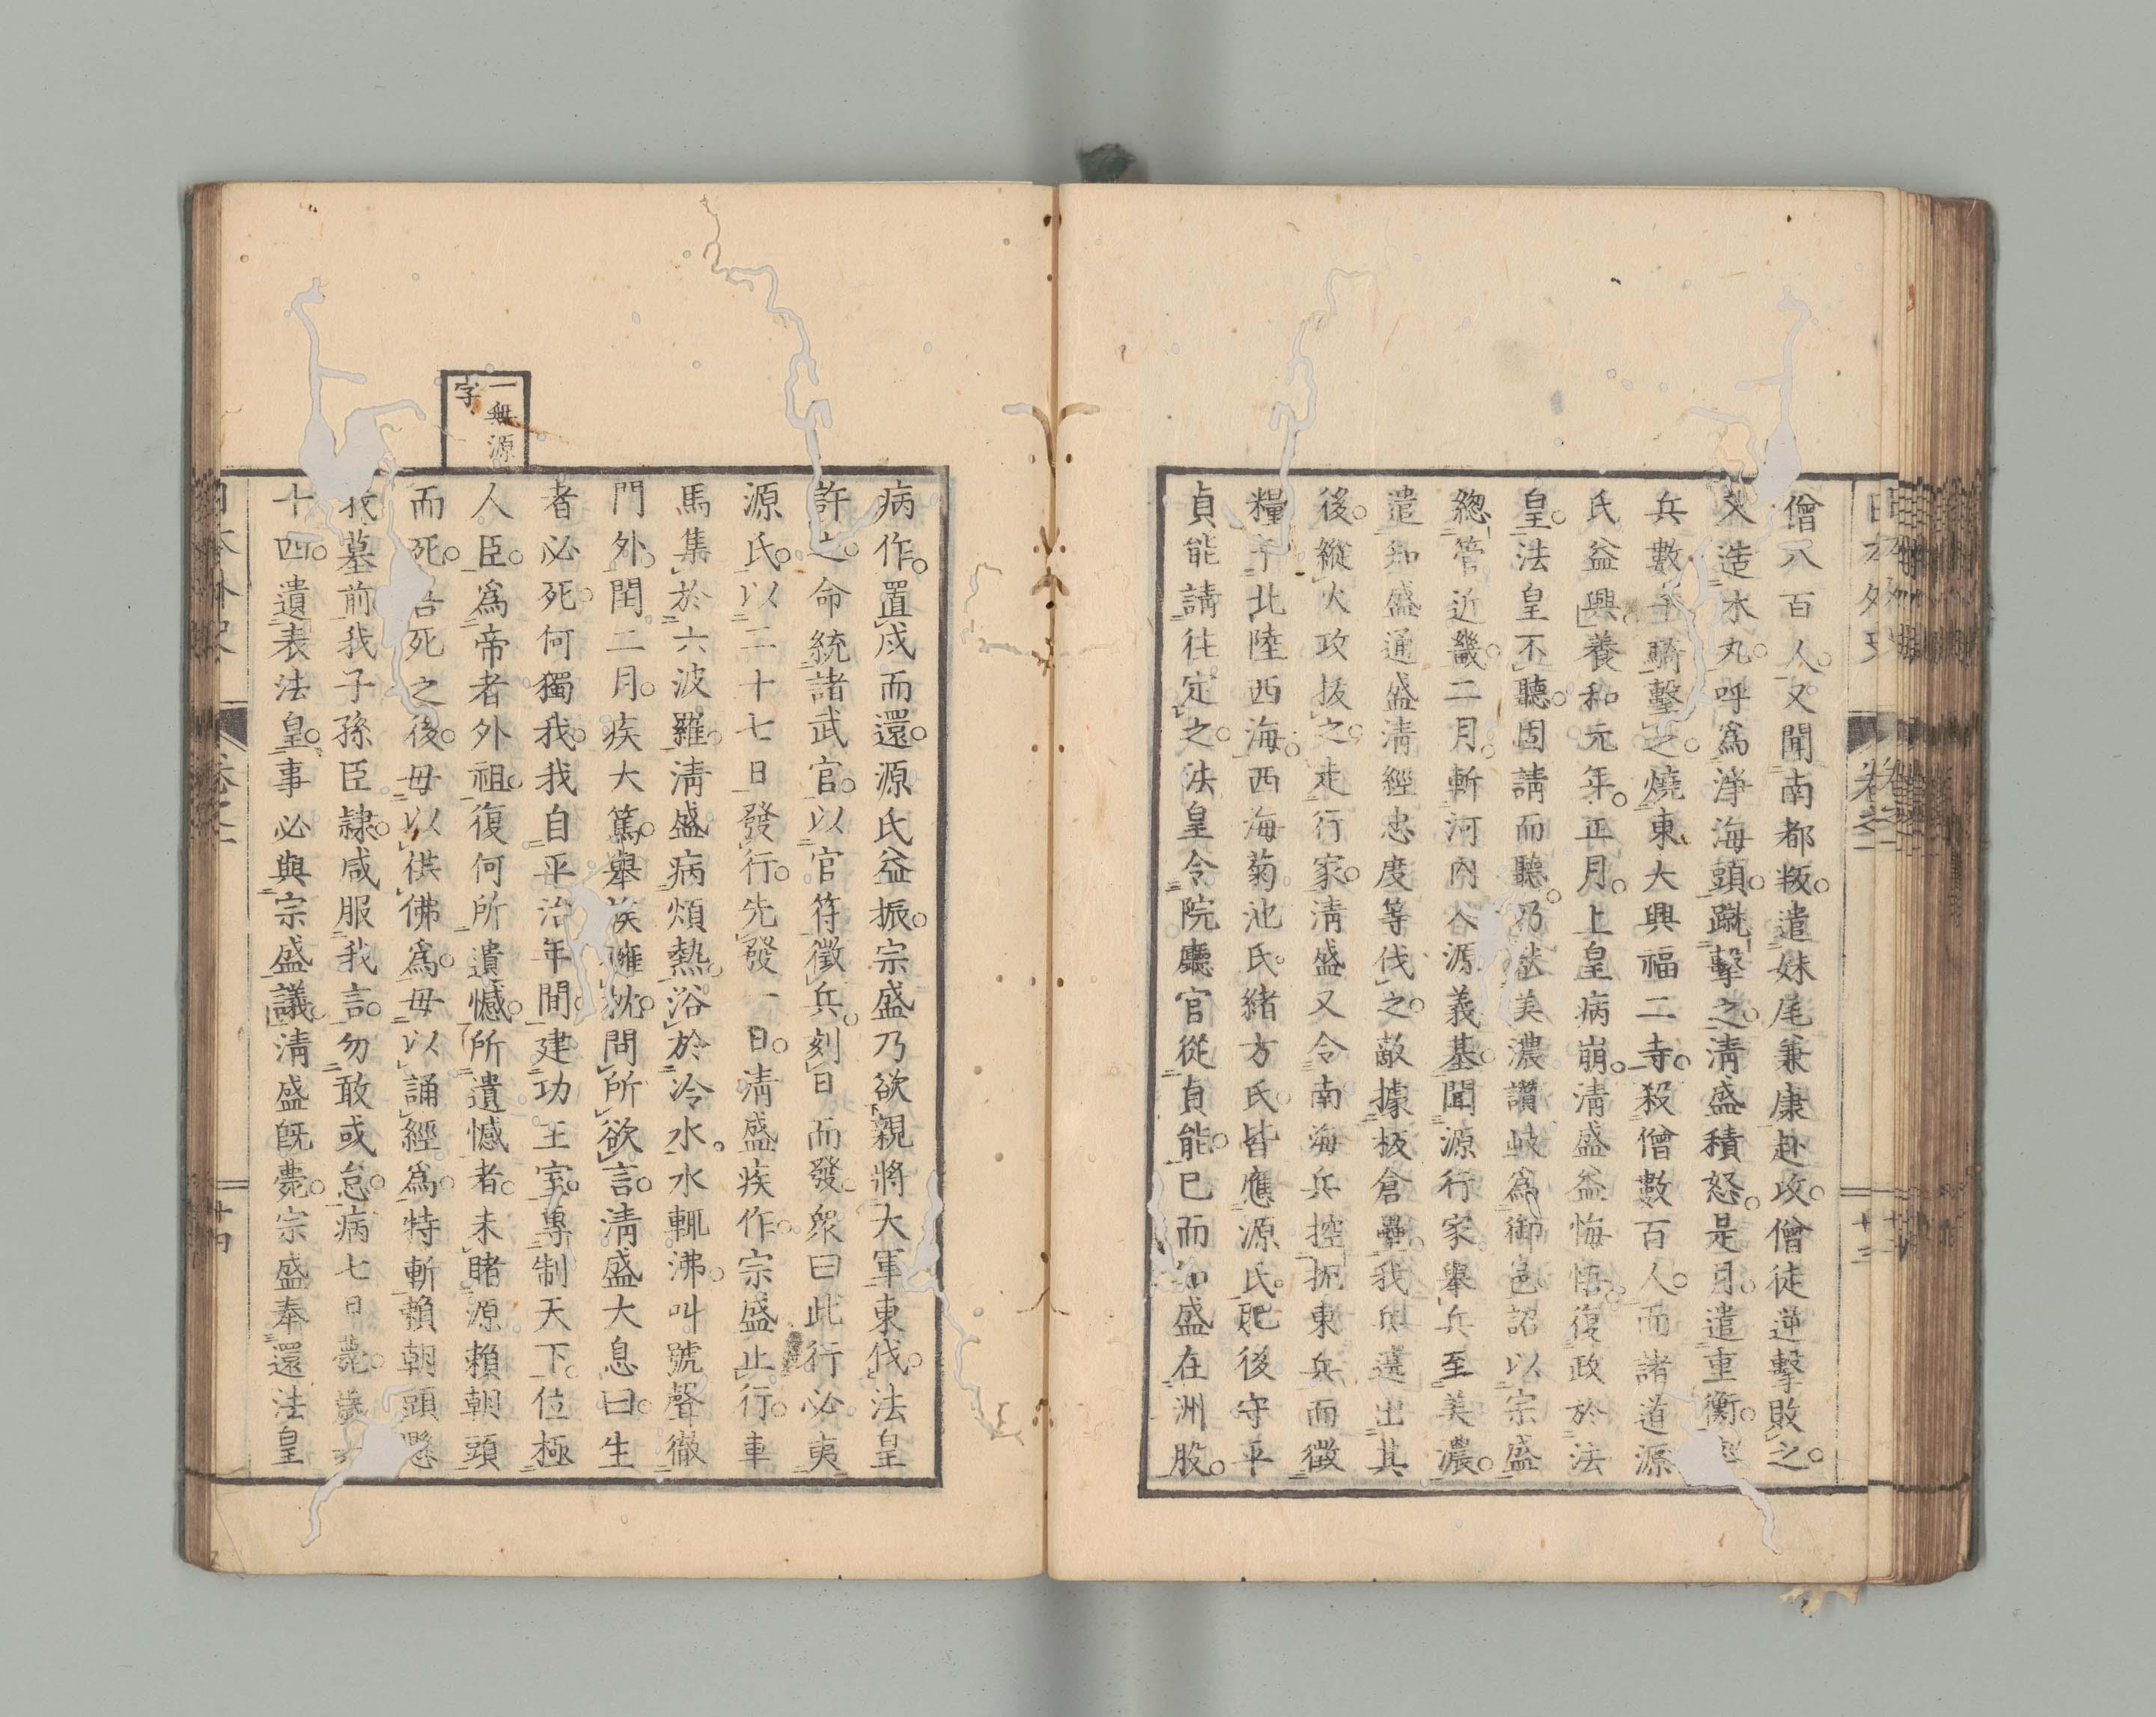 僧八百人。又聞南都叛。遣妹尾兼康赴攻。僧徒逆擊敗之。
又造木丸。呼爲淨海頭。蹴擊之。淸盛積怒。是月。遣重衡。
兵數千騎擊之。燒東大興福二寺。殺僧數百人。而諸道源
氏益興。養和元年。正月。上皇病崩。淸盛益悔悟。復政於法
皇。法皇不聽。固請而聽。乃獻美濃讚岐爲御邑。詔以宗盛
總管近畿。二月。斬河內谷源義基。聞源行家舉兵至美濃。
遣知盛通盛淸經忠度等伐之。敵據板倉壘。我兵遶出其
後。縱火攻拔之。走行家。淸盛又令南海兵控扼東兵而徵
糧于北陸西海。西海菊池氏。緒方氏。皆應源氏。肥後守平
貞能請往定之。法皇令院廳官從貞能。已而知盛在洲股。
日本外史 卷之二 十三
病作。置戍而還。源氏益振。宗盛乃欲親將大軍東伐。法皇
許之。命統諸武官。以官符徵兵。刻日而發。衆曰此行必夷
源氏。以二十七日發行。先發一日。淸盛疾作。宗盛止行。車
馬集於六波羅。淸盛病煩熱。浴於冷水。水輒沸。叫號聲徹
門外。閏二月。疾大篤。舉族擁枕。問所欲言。淸盛大息曰。生
者必死。何獨我。我自平治年間。建功王室。專制天下。位極
人臣。爲帝者外祖。復何所遺憾。所遺憾者。未睹源賴朝頭
而死。吾死之後。毋以供佛爲。毋以誦經爲。特斬賴朝頭懸
我墓前。我子孫臣隷。咸服我言。勿敢或怠。病七日薨。歲六
十四。遺表法皇。事必與宗盛議。淸盛旣薨。宗盛奉還法皇
一無源
字
日本外史 卷之二 十四